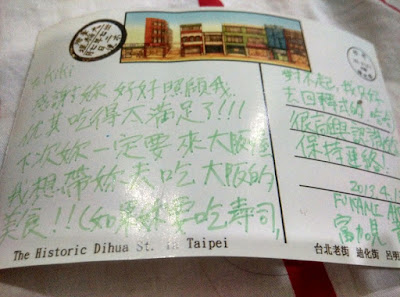 to kiki
感謝妳 好好照顧我,
尤其吃得太滿足了!!!
下次妳一定要來大阪
我想帶妳去吃大阪的
美食!!(如果妳要吃寿司,
對不起,我只好
去回轉式的
很高興認識妳
保持連絡!
2013.4.1
富加見
The Historic Dihua St. in Taipei
台北老街 迪化街